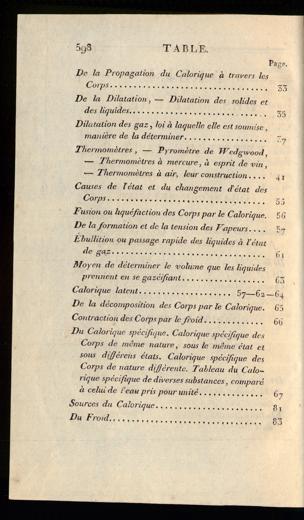 598 TABLE.
Page.
De la Propagation du Calorique à travers les
Corps.............................. 33
De la Dilatation, — Dilatation des solides et
des liquides........................... 35
Dilatation des gaz, loi à laquelle elle est soumise,
manière de la déterminer............... 37
Thermomètres, — Pyromètre de Wedgwood,
— Thermomètres à mercure, à esprit de vin,
— Thermomètres à air, leur construction.... 41
Causes de l'état et du changement d'état des
Corps.............................. 55
Fusion ou liquéfaction des Corps par le Calorique. 56
De la formation et de la tension des Vapeurs.... 57
Ébullition ou passage rapide des liquides à l'état
de gaz.............................. 61
Moyen de déterminer le volume que les liquides
prennent en se gazéifiant............... 63
Calorique latent.................. 57—62—64
De la décomposition des Corps par le Calorique. 65
Contraction des Corps par le froid............ 66
Du Calorique spécifique. Calorique spécifique des
Corps de même nature, sous le même état et
sous différens états. Calorique spécifique des
Corps de nature différente. Tableau du Calo-
rique spécifique de diverses substances, comparé
à celui de l'eau pris pour unité............. 67
Sources du Calorique...................... 81
Du Froid............................... 83